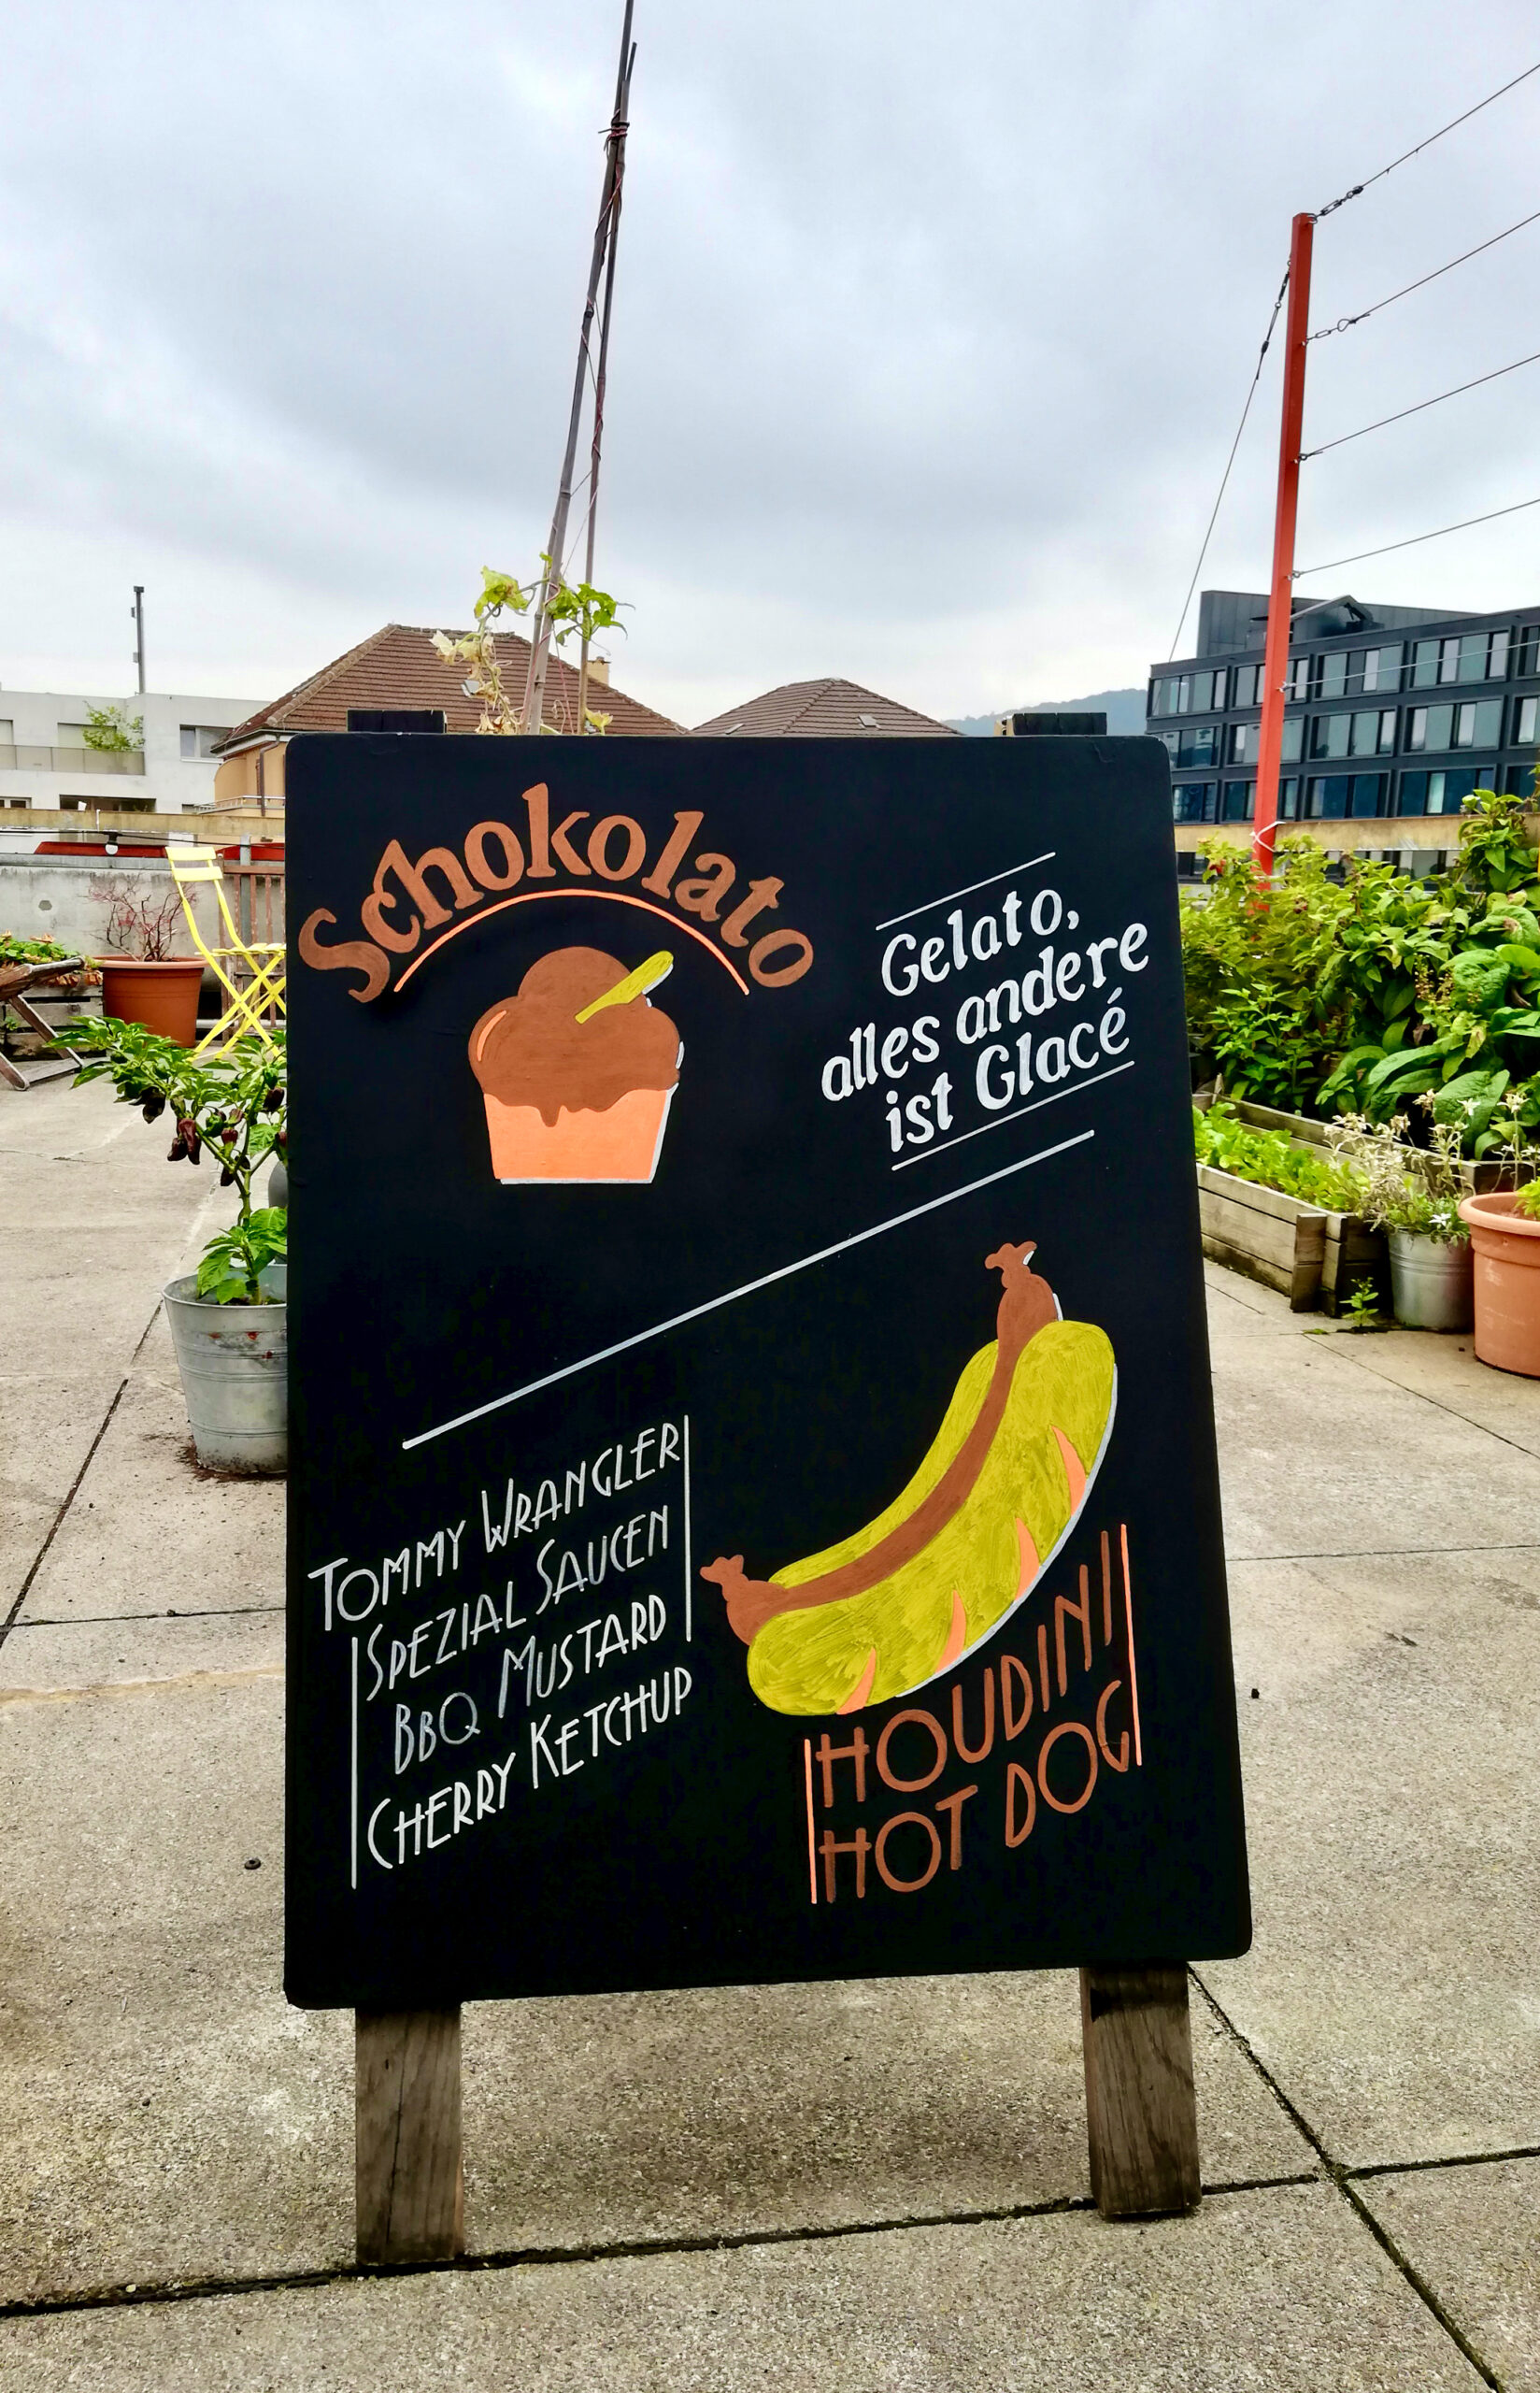 Schokolato
Gelato,
alles andere
ist Glacé
TOMMY WRANGLER
SPEZIAL SAUCEN
BBQ MUSTARD
CHERRY KETCHUP
HOUDINI
HOT DOG